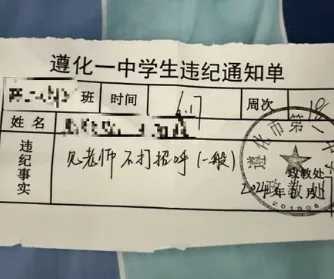 遵化一中学生违纪通知单
班 时间 6.7 周次 18
姓名
违纪事实 见老师不打招呼(一般)
遵化市第一中学
政教处
2024年6月
政教处